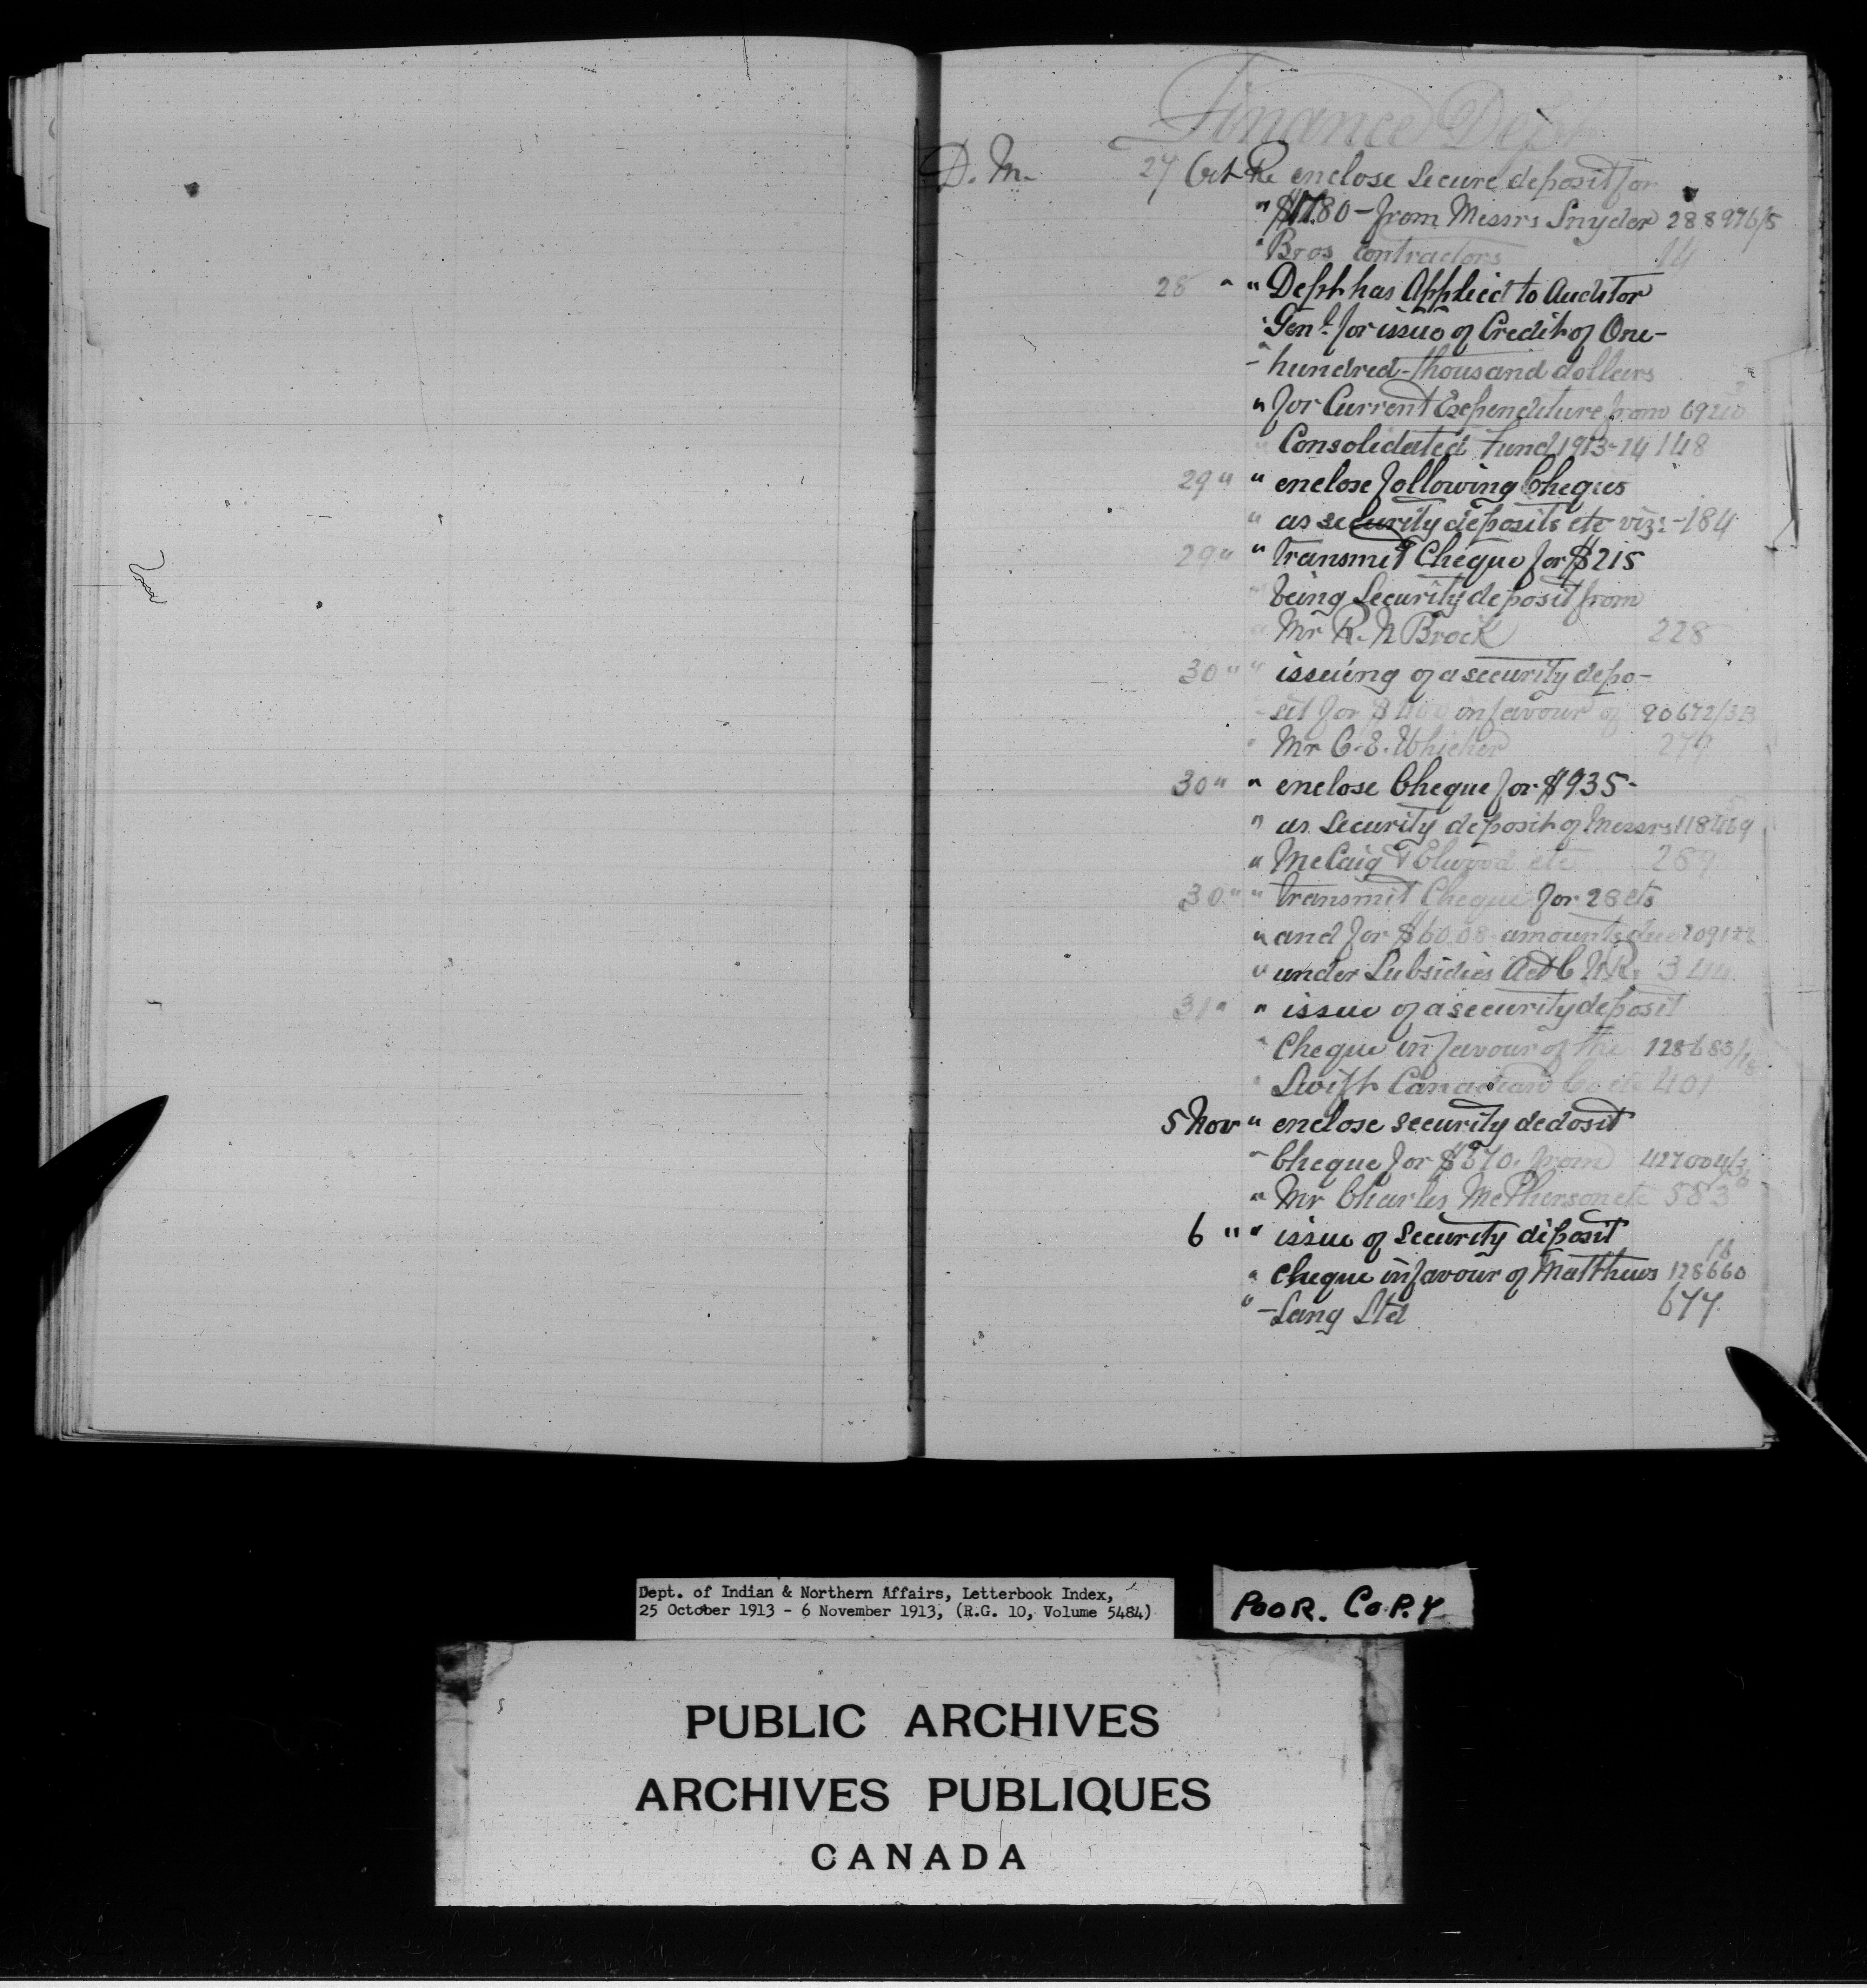 Finance Dept
D. M. 27 Oct Re enclose secure deposit for
" $1780 - from Messrs Snyder 288976/5
" Bros contractors 14
28 " " Dept has Applied to Auditor
" Genl. for issue of Credit of One-
- hundred-thousand dollars
" for Current Expenditure from
" Consolidated Fund 1913-14 148
29 " " enclose following Cheques
" as security deposits etc viz:- 184
29 " " transmit Cheque for $215
" being Security deposit from
" Mr R. N Brock 228
30 " " issueing of a security depo-
- sit for $400 in favour of 90672/3B
" Mr C. E. Whicher 279
30 " " enclose Cheque for $935-
" as Security deposit of Messrs
" McCaig & Elwood etc 289
30 " " transmit Cheque for 28 cts
" and for $60.08 amounts due 209122
" under Subsidies Act C N R. 344
31 " " issue of a security deposit
" Cheque in favour of the 128683/18
" Swift Canadian Co etc 401
5 Nov " enclose security dedosit
" Cheque for $670. from
" Mr Charles McPherson etc 583
6 " " issue of Security diposit
" Cheque in favour of Matthews 128660 16
" - Lang Ltd 677
Dept. of Indian & Northern Affairs, Letterbook Index,
25 October 1913 - 6 November 1913, (R.G. 10, Volume 5484)
POOR. COPY
PUBLIC ARCHIVES
ARCHIVES PUBLIQUES
CANADA